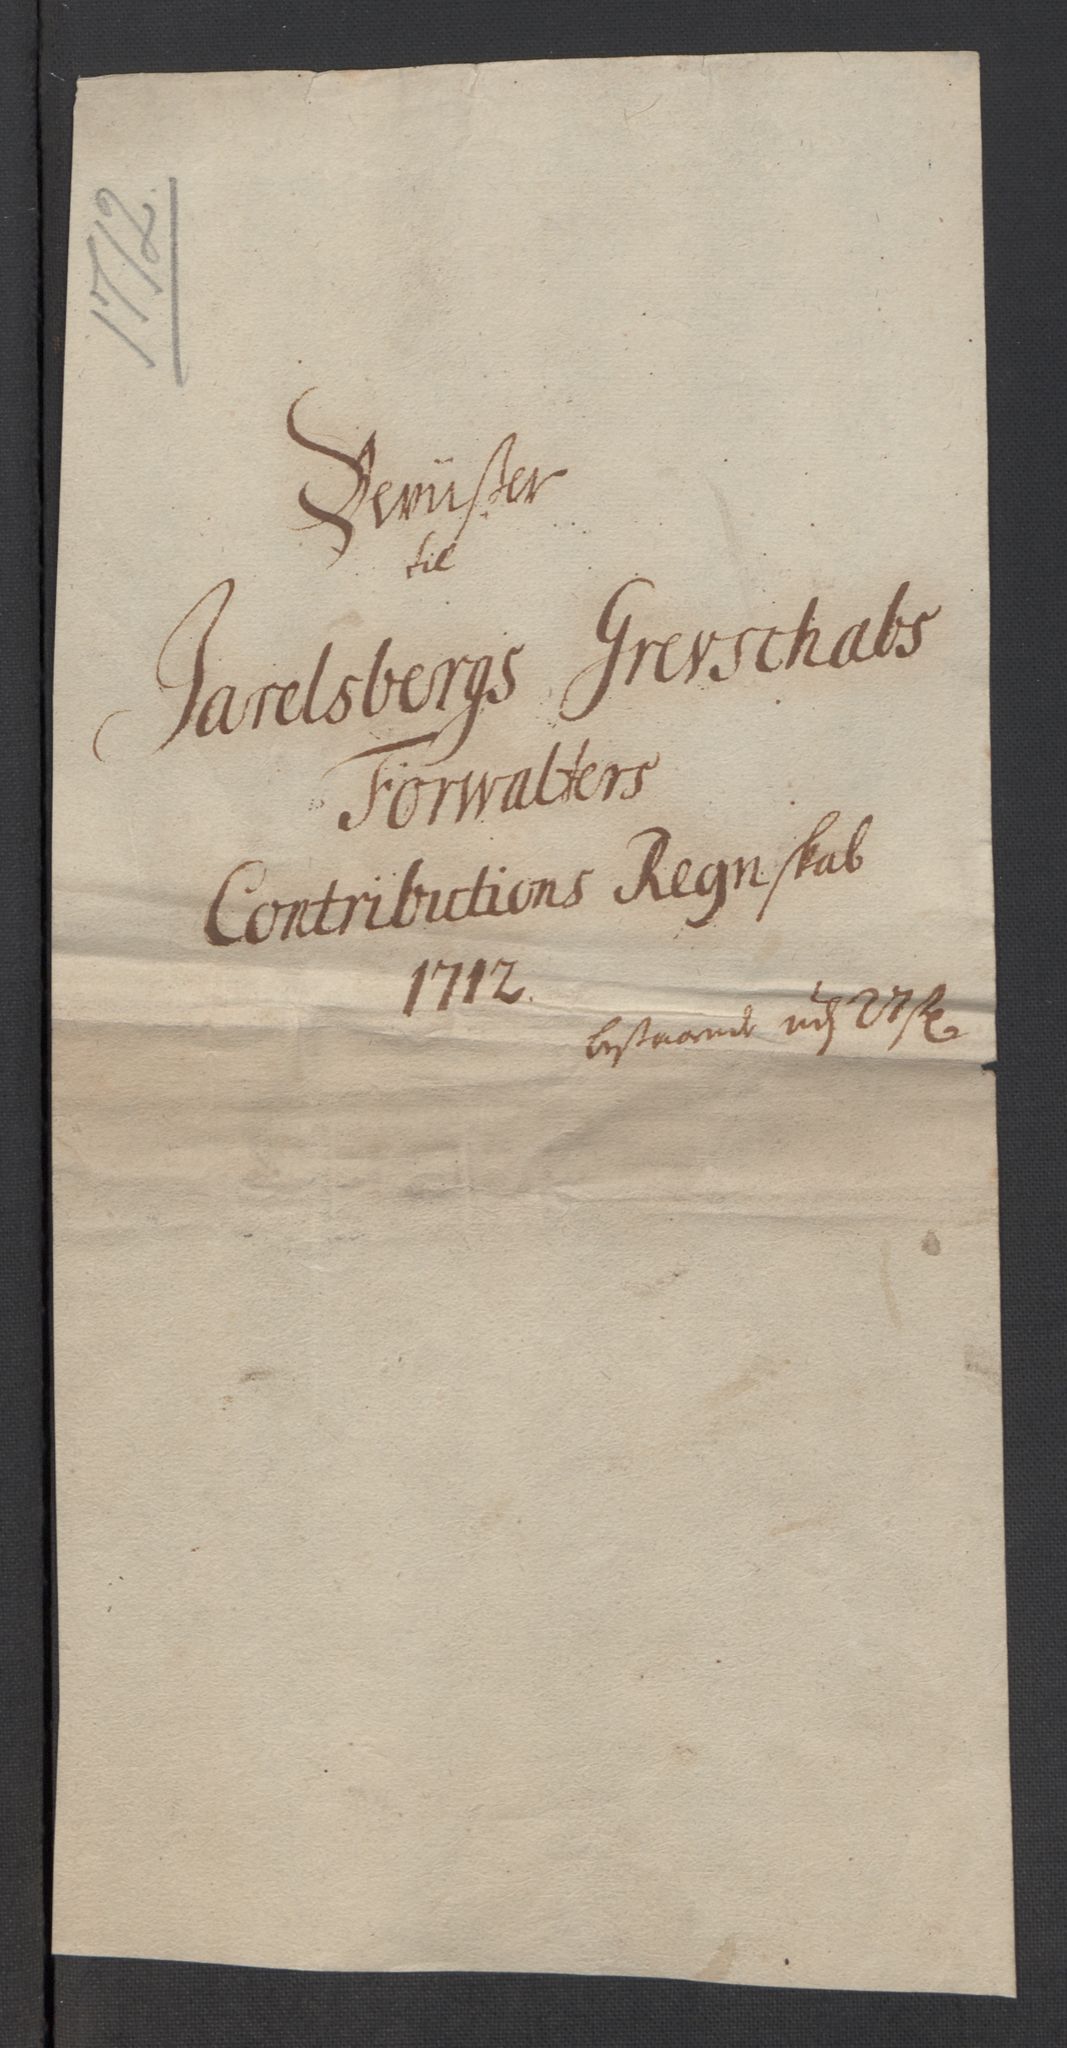 1712.
Bewüßer
til
Jarelsbergs Grevschabs
Forwalters
Contributions Regnskab
1712.
bestaaende udj 27 st.